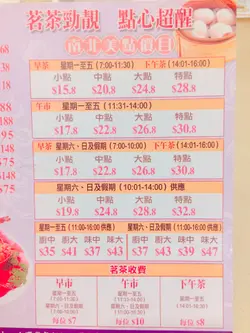 茗茶勁靚 點心超醒
南北美點價目
早茶 星期一至五(7:00-11:30) 下午茶(14:01-16:00)
小點 中點 大點 特點
$15.8 $20.8 $24.8 $28.8
午市 星期一至五(11:31-14:00)
小點 中點 大點 特點
$17.8 $22.8 $26.8 $30.8
早茶 星期六、日及假期(7:00-10:00) 下午茶(14:01-16:00)
小點 中點 大點 特點
$17.8 $22.8 $26.8 $30.8
星期六、日及假期(10:01-14:00)供應
小點 中點 大點 特點
$19.8 $24.8 $28.8 $32.8
星期一至五(11:00-16:00供應) 星期六、日及假期(11:00-16:00供應)
廚中 廚大 味中 味大 廚中 廚大 味中 味大
$35 $41 $37 $43 $37 $43 $39 $47
茗茶收費
早市 午市 下午茶
星期一至五 星期一至五 星期一至五
星期六、日及假期 星期六、日及假期 星期六、日及假期
每位$7 每位$10 每位$8